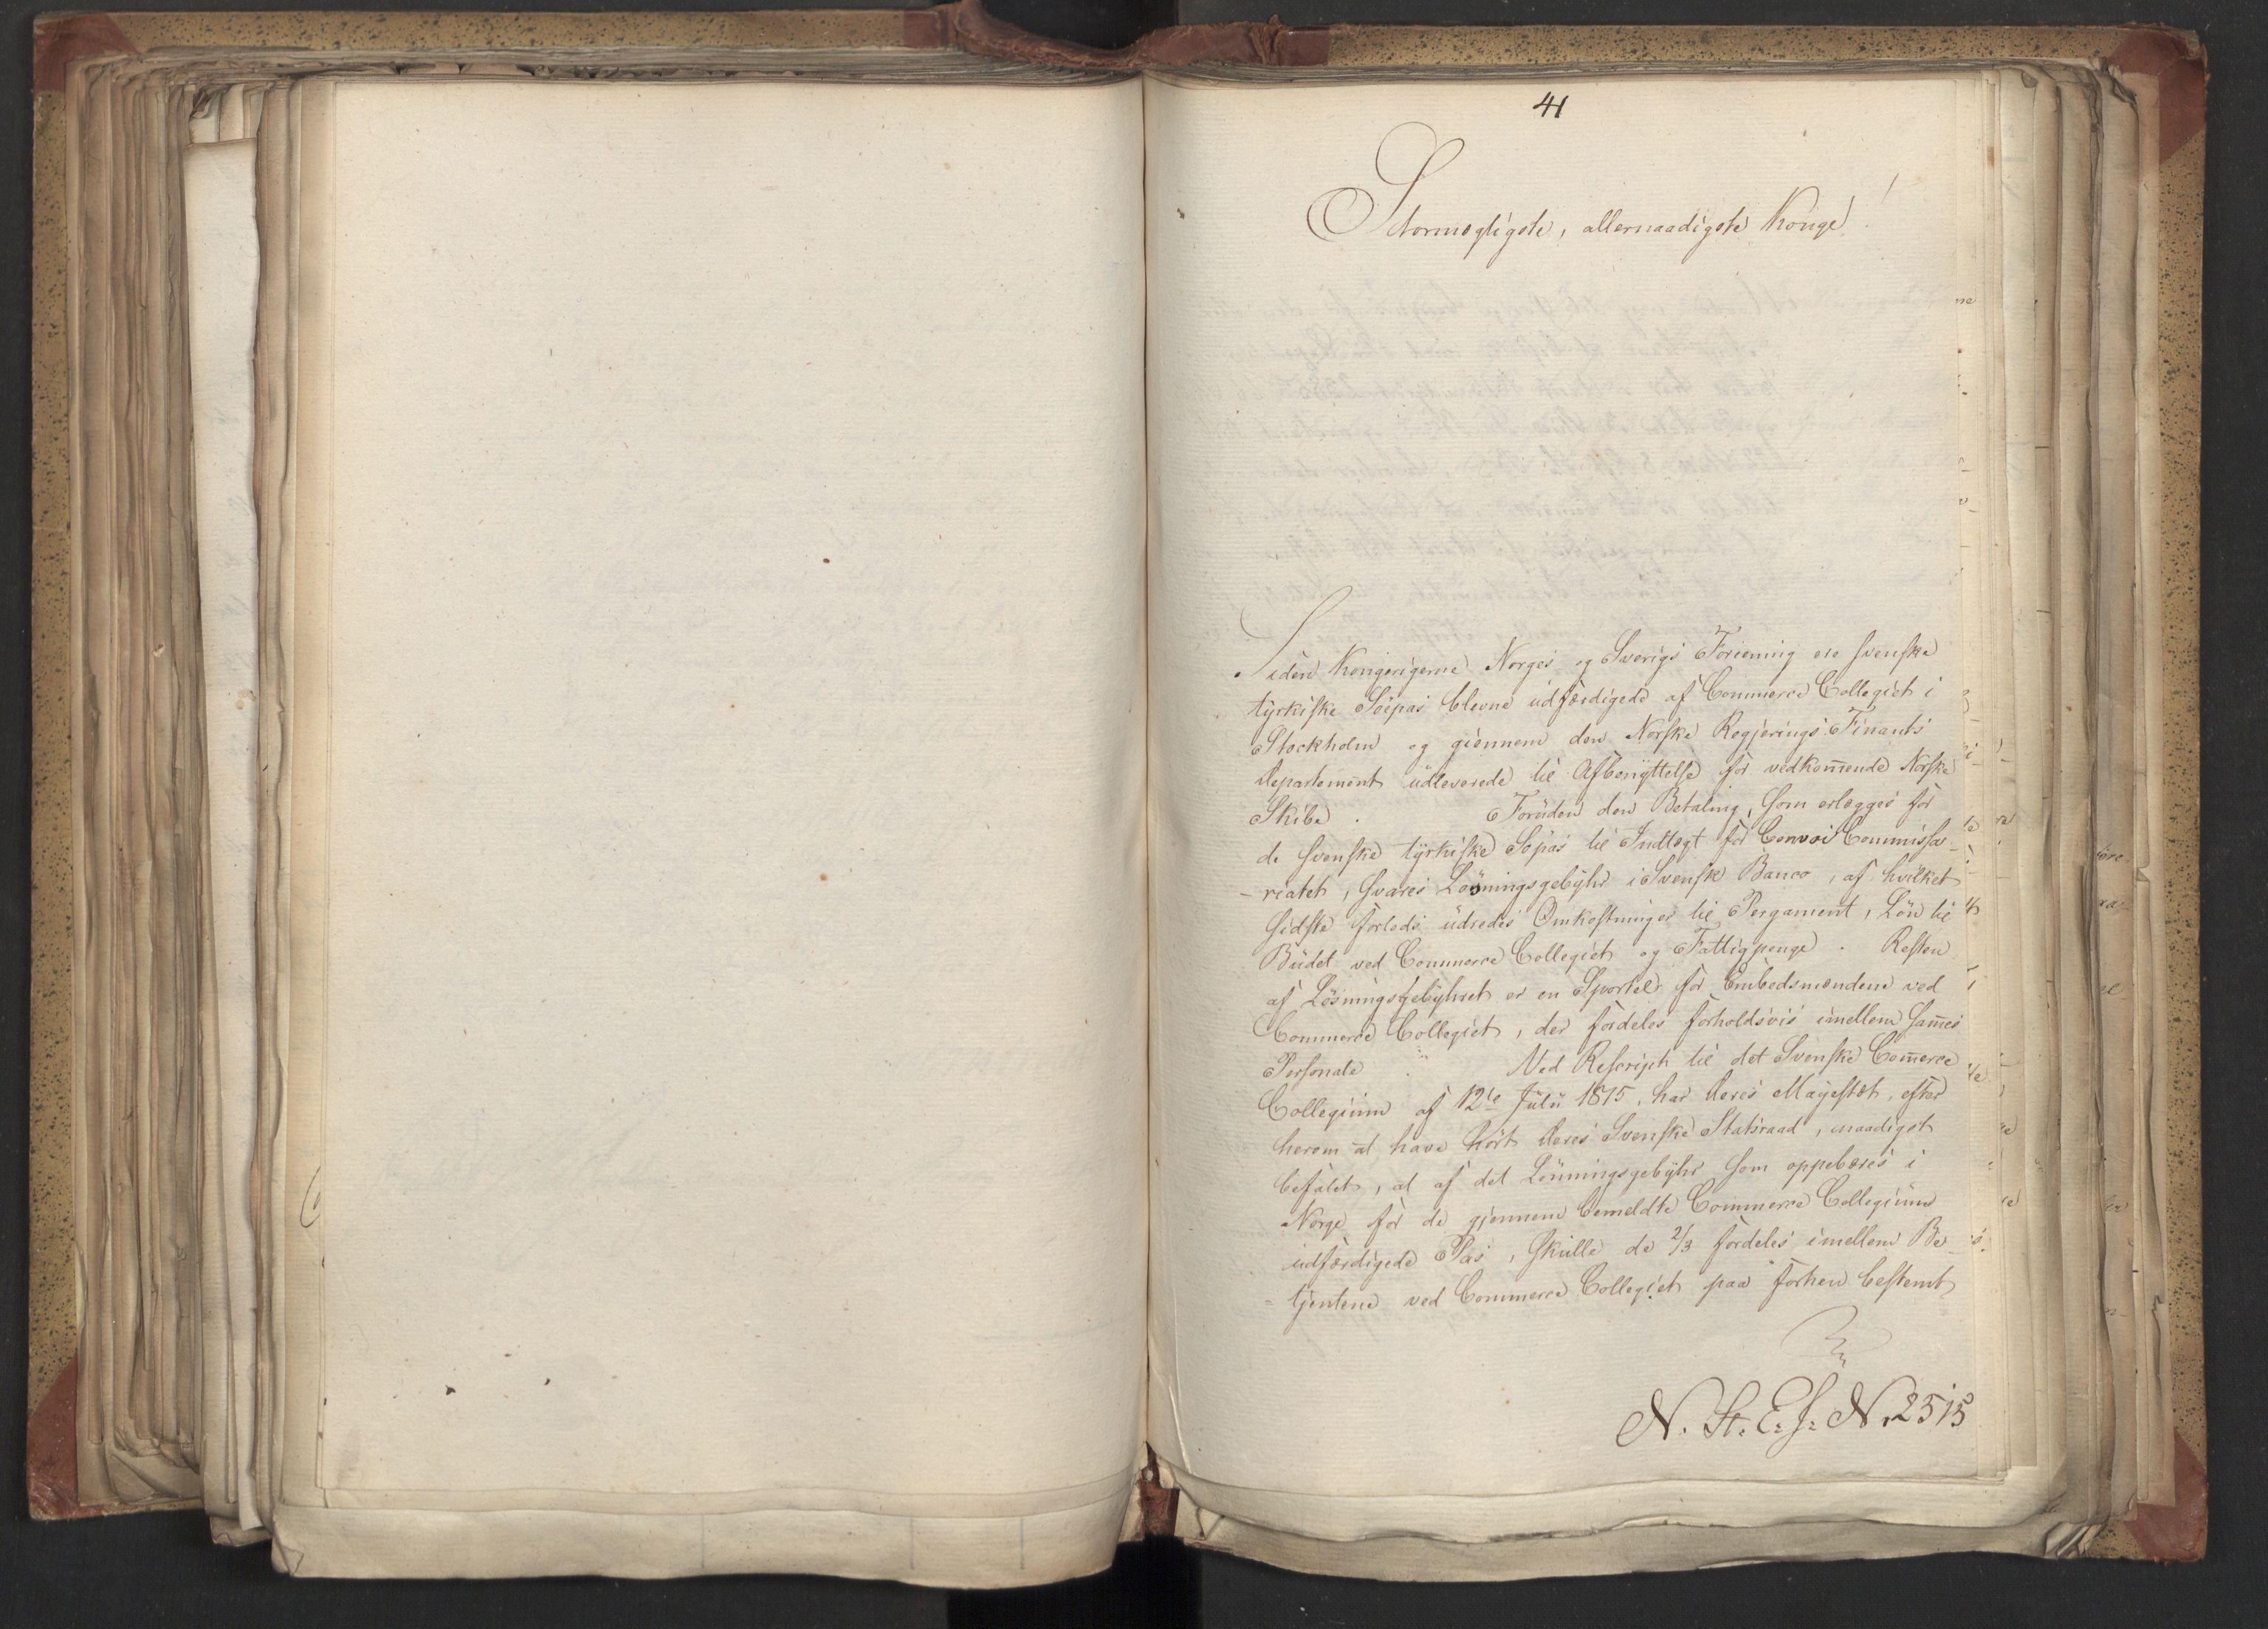 41
Stormægtigste, allernaadigste Konge!
Siden Kongerigerne Norges og Sverigs Foriening ere svenske
tyrkiske Söepas blevne udfærdigede af Commerce Collegiet i
Stockholm og giennem den Norske Regjerings Finants
Departement udleverede til Afbenyttelse for vedkom̅ende Norske
Skibe. Foruden den Betaling, som erlægges for
de svenske tyrkiske Søpas til Indtægt for Convoi Commissa-
-riatet, svares Løsningsgebyhr i Svensk Banco, af hvilket
sidste forlods udredes Omkostninger til Pergament, Lön til
Budet ved Commerce Collegiet og Fattigpenge. Resten
af Lösningsgebyhret er en Sportel for Embedsmændene ved
Commerce Collegiet, der fordeles forholdsvis imellem sam̅es
Personale. Ved Rescript til det Svenske Com̅erce
Collegium af 12te Julii 1815, har Deres Majestæt, efter
herom at have hört Deres Svenske Statsraad, naadigst
befalet, at af det Lönningsgebyhr som oppebæres i
Norge for de gjennem bemeldte Commerce Collegium
udfærdigede Pas, skulle de 2/3 fordeles imellem Be-
-tjentene ved Commerce Collegiet paa forhen bestemt
N. St. E. J. N. 2515